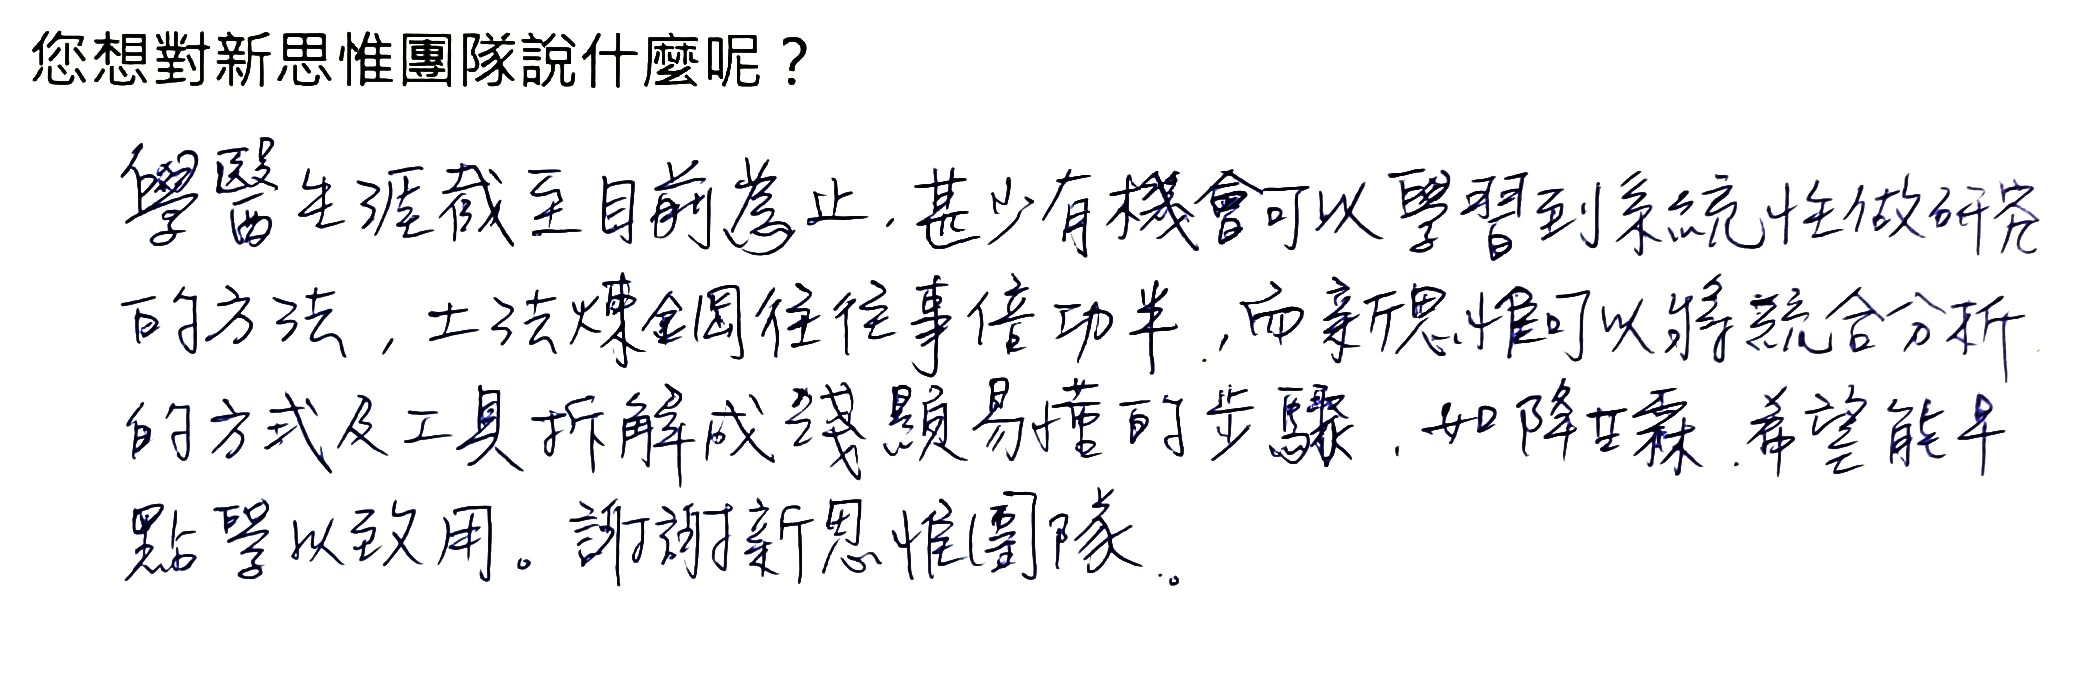 您想對新思惟團隊說什麼呢？
學醫生涯截至目前為止，甚少有機會可以學習到系統性做研究
的方法，土法煉鋼往往事倍功半，而新思惟可以將統合分析
的方式及工具拆解成淺顯易懂的步驟，如降甘霖，希望能早
點學以致用。謝謝新思惟團隊。